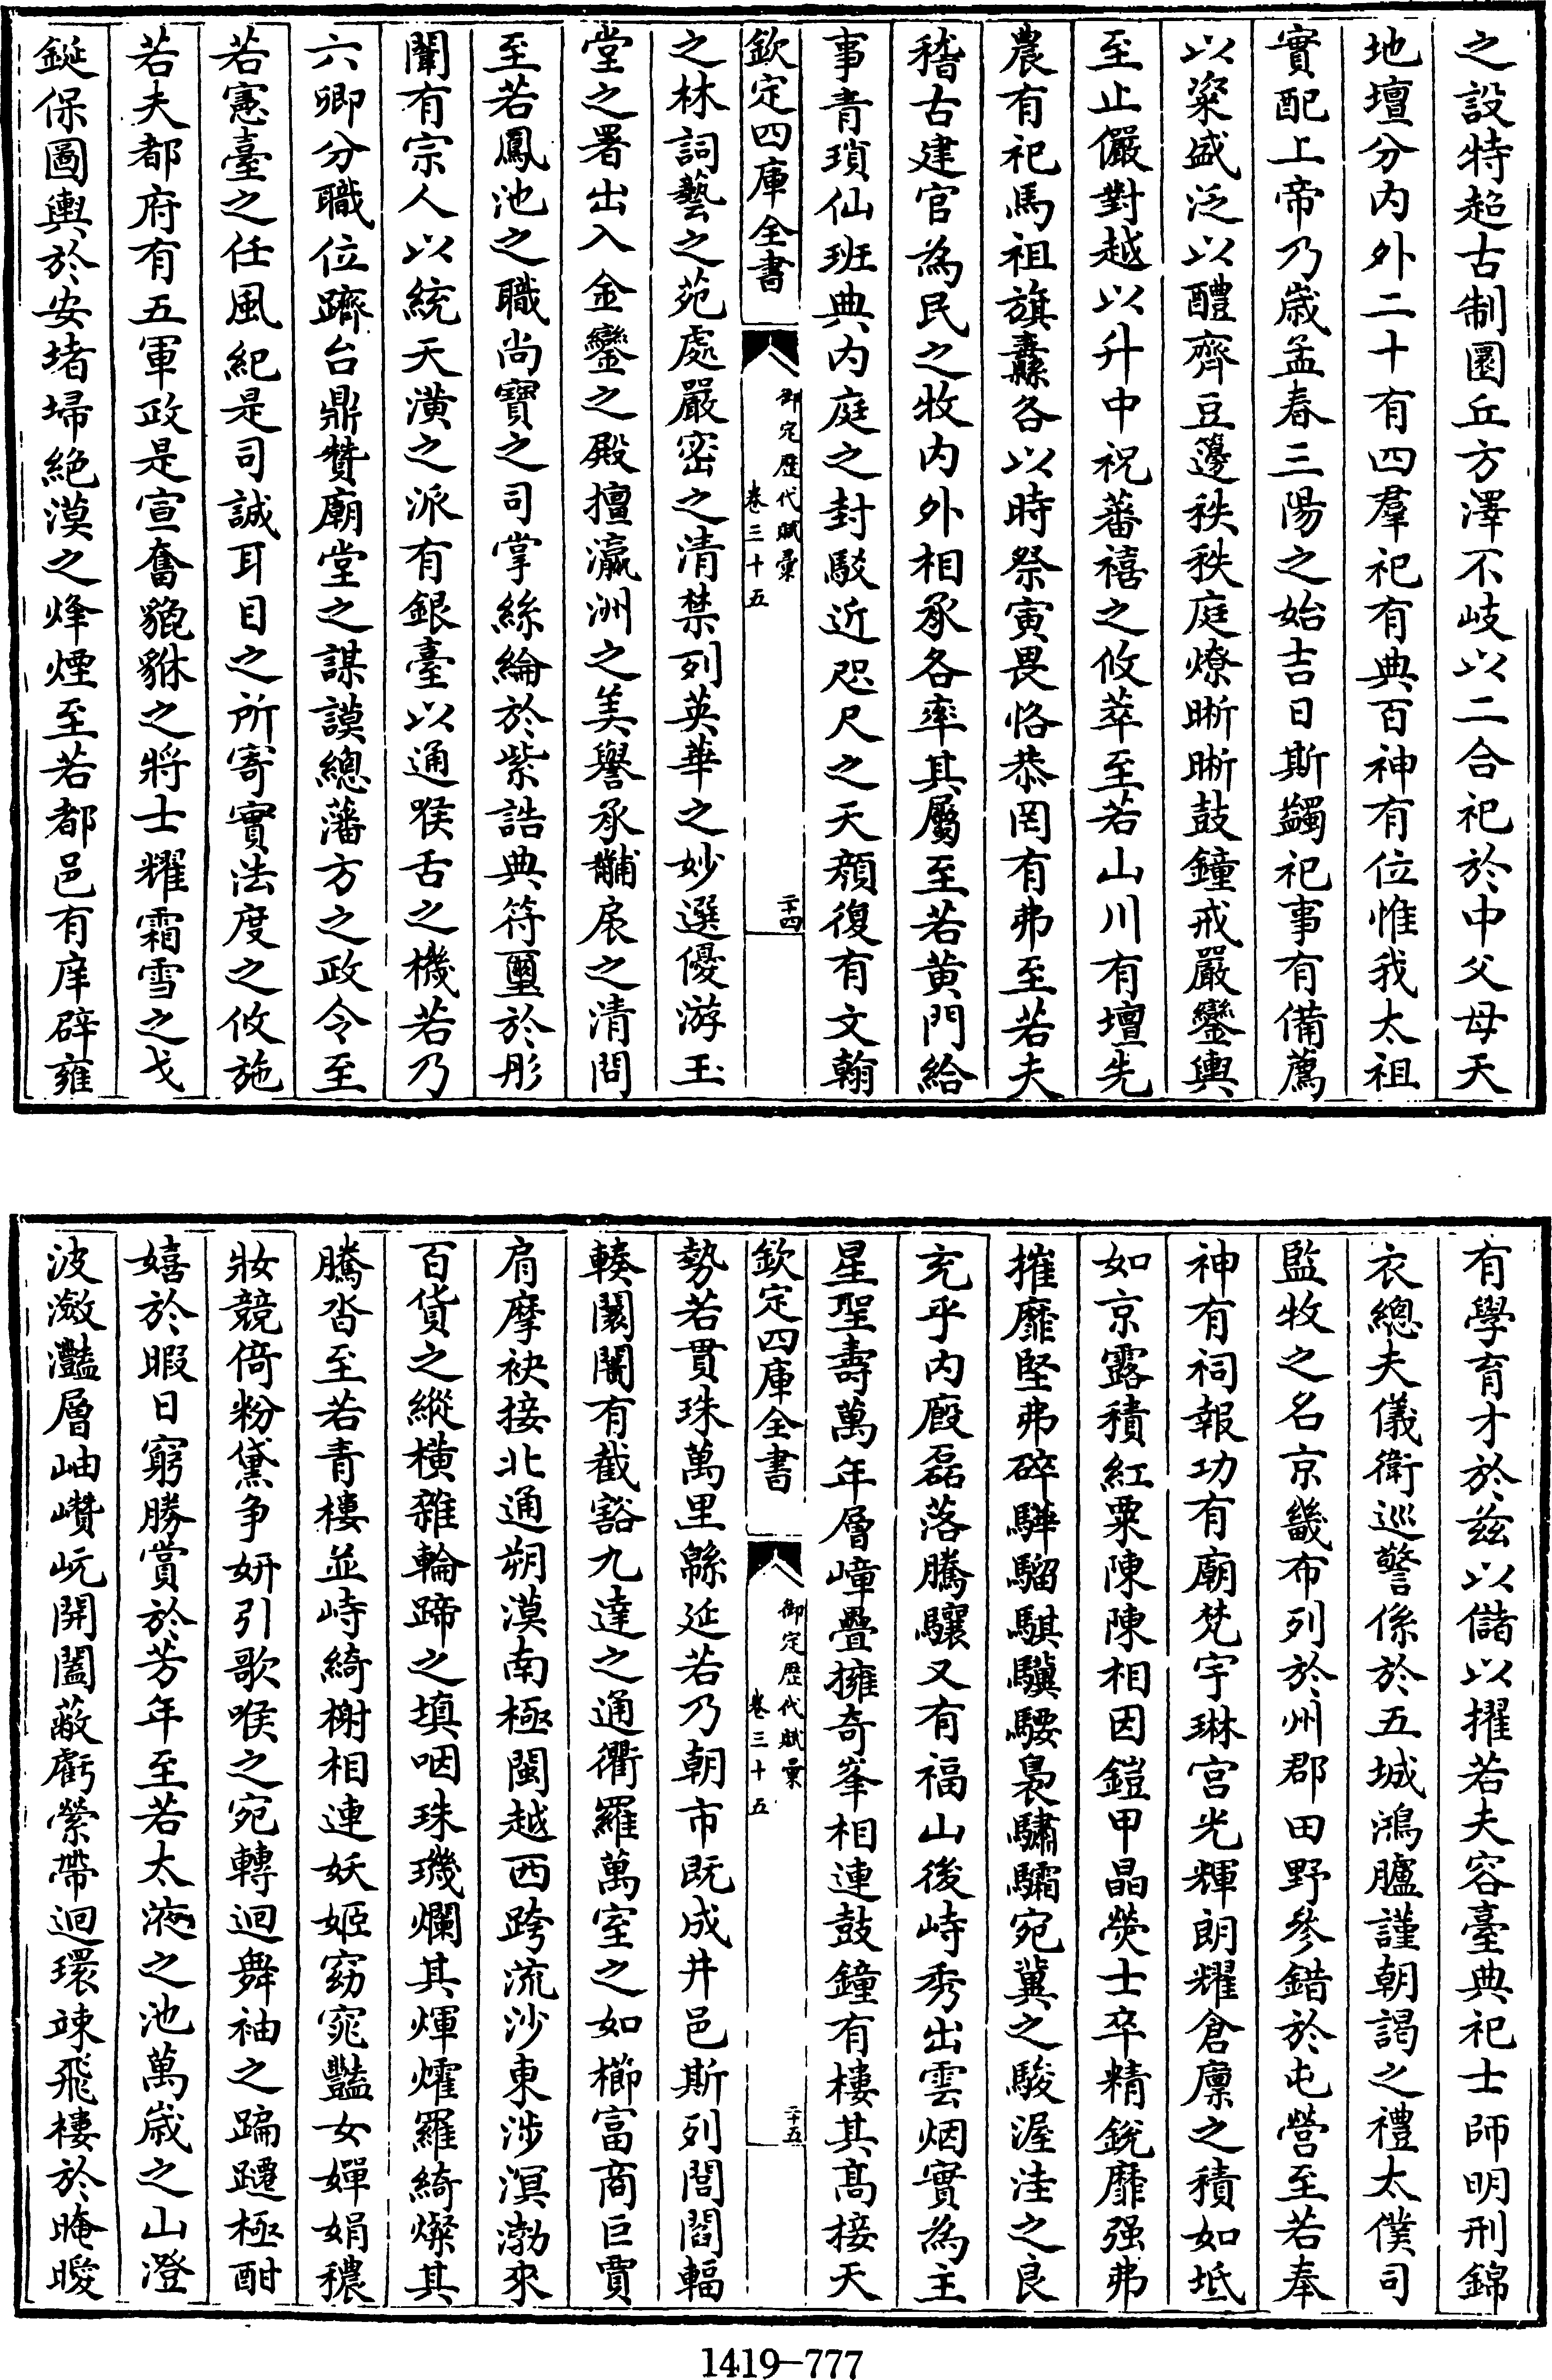 之設特超古制圜丘方澤不岐以二合祀於中父母天
地壇分内外二十有四羣祀有典百神有位惟我太祖
實配上帝乃嵗孟春三陽之始吉日斯蠲祀事有備薦
以粢盛泛以醴齊豆籩秩秩庭燎晰晰鼓鐘戒嚴鑾輿
至止儼對越以升中祝蕃禧之攸萃至若山川有壇先
農有祀馬祖旗纛各以時祭寅畏恪恭罔有弗至若夫
稽古建官為民之牧内外相承各率其屬至若黄門給
事青瑣仙班典内庭之封駁近咫尺之天顔復有文翰
欽定四庫全書
御定歴代賦彙
卷三十五
二十四
之林詞藝之苑處嚴密之清禁列英華之妙選優游玉
堂之署出入金鑾之殿擅瀛洲之美譽承黼扆之清問
至若鳳池之職尚寶之司掌絲綸於紫誥典符璽於彤
闈有宗人以統天潢之派有銀臺以通喉舌之機若乃
六卿分職位躋台鼎贊廟堂之謀謨總藩方之政令至
若憲臺之任風紀是司誠耳目之所寄實法度之攸施
若夫都府有五軍政是宣奮貔貅之將士耀霜雪之戈
鋋保圖輿於安堵埽絶漠之烽煙至若都邑有庠辟雍
有學育才於兹以儲以擢若夫容臺典祀士師明刑錦
衣總夫儀衛巡警係於五城鴻臚謹朝謁之禮太僕司
監牧之名京畿布列於州郡田野參錯於屯營至若奉
神有祠報功有廟梵宇琳宫光輝朗耀倉廪之積如坻
如京露積紅粟陳陳相因鎧甲晶熒士卒精鋭靡强弗
摧靡堅弗碎驊騮騏驥騕褭驌驦宛冀之駿渥洼之良
充乎内廏磊落騰驤又有福山後峙秀出雲烟實為主
星聖壽萬年層嶂疊擁竒峯相連鼓鐘有樓其髙接天
欽定四庫全書
御定歴代賦彙
卷三十五
二十五
勢若貫珠萬里緜延若乃朝市既成井邑斯列閭閻輻
輳闤闠有截豁九逵之通衢羅萬室之如櫛富商巨賈
肩摩袂接北通朔漠南極閩越西跨流沙東涉溟渤來
百貨之縱横雜輪蹄之填咽珠璣爛其煇燿羅綺燦其
騰沓至若青樓並峙綺榭相連妖姬窈窕豔女嬋娟穠
妝競倚粉黛争妍引歌喉之宛轉迴舞袖之蹁躚極酣
嬉於暇日窮勝賞於芳年至若太液之池萬嵗之山澄
波瀲灩層岫巑岏開闔蔽虧縈帶迴環竦飛樓於晻曖
1419—777